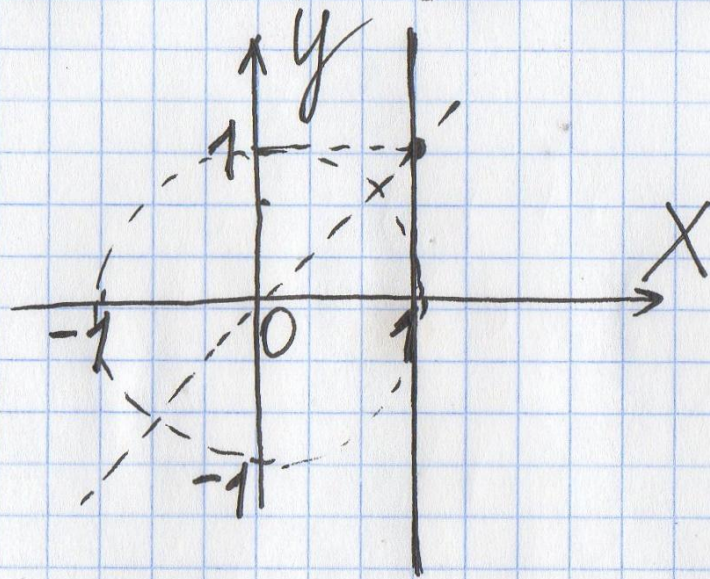 y
1
X
-1
0
1
-1